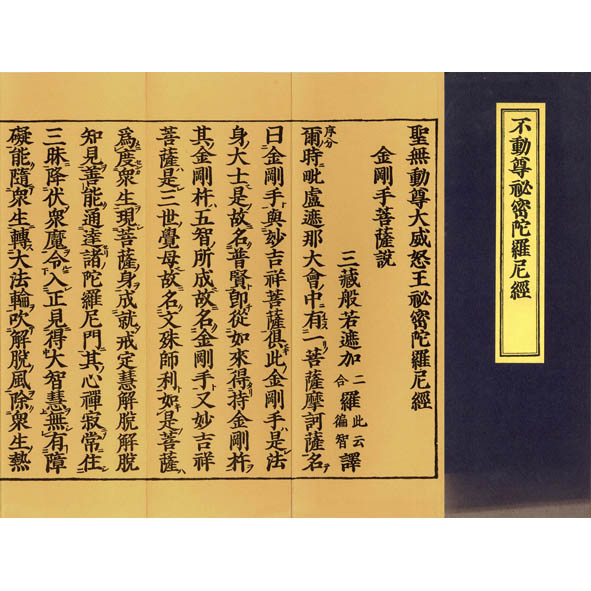 不動尊祕密陀羅尼經
聖無動尊大威怒王祕密陀羅尼經
金剛手菩薩說
三藏般若遮加二合羅此云徧智譯
序分
爾時毗盧遮那大會中有一菩薩摩訶薩名
曰金剛手與妙吉祥菩薩俱此金剛手是法
身大士是故名普賢即從如來得持金剛杵
其金剛杵五智所成故名金剛手又妙吉祥
菩薩是三世覺母故名文殊師利如是菩薩
爲度衆生現菩薩身成就戒定慧解脫解脫
知見善能通達諸陀羅尼門其心禪寂常住
三昧降伏衆魔令入正見得大智慧無有障
礙能隨衆生轉大法輪吹解脫風除衆生熱